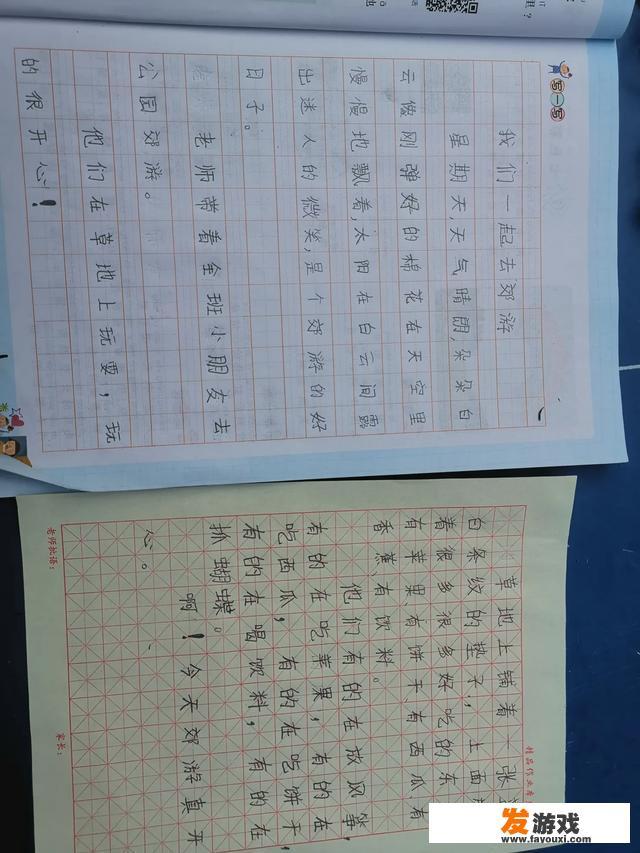 写一写
我们一起去郊游
星期天,天气晴朗,朵朵白
云像刚弹好的棉花在天空里
慢慢地飘着,太阳在白云间露
出迷人的微笑,是个郊游的好
日子。
老师带着全班小朋友去
公园郊游。
他们在草地上玩耍,玩
的很开心!
精品作业本
草地上铺着一张
白条纹的垫子,上面
着很多很多好吃的东
有苹果、有饼干、有西瓜、有
香蕉、有饮料。
他们有的在放风筝,
有的在吃苹果,有的在
吃西瓜,有的在吃饼干,
有的在喝饮料,有的在
抓蝴蝶。
啊!今天郊游真开
心。
老师批语:
家长:
发游戏
www.favouxi.com